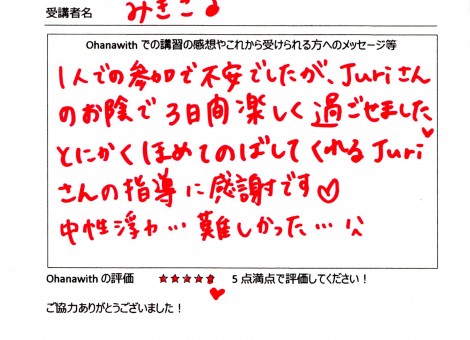 受講者名 みきこる
Ohanawith での講習の感想やこれから受けられる方へのメッセージ等
1人での参加で不安でしたが、Juriさん
のお陰で3日間楽しく過ごせました
とにかくほめてのばしてくれるJuri
さんの指導に感謝です♡
中性浮力… 難しかった…
Ohanawith の評価 ★★★★★ 5点満点で評価してください！
ご協力ありがとうございました！